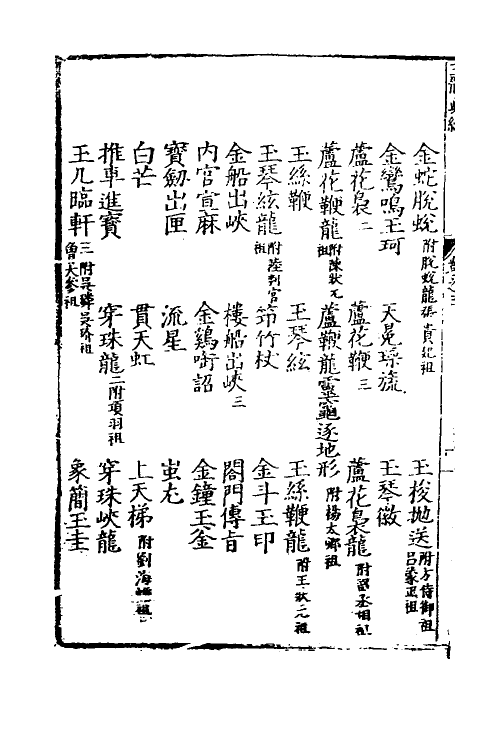 金蛇脫蛻 附脫蛻龍張貴妃祖 玉梭拋送 附方侍御祖呂蒙正祖
金鸞鳴玉珂 天冕瑧旒 玉琴徽
蘆花裊二 蘆花鞭三 蘆花裊龍 附留丞相祖
蘆花鞭龍 附陳狀元祖 蘆鞭龍靈龜逐地形 附楊太鄉祖
玉絲鞭 玉琴絃 玉絲鞭龍 附王狀元祖
玉琴絃龍 附陸判官祖 笻竹杖 金斗玉印
金船出峽 樓船出峽三 閣門傳旨
內官宣麻 金鷄啣詔 金鐘玉釜
寶劒出匣 流星 蚩尤
白芒 貫天虹 上天梯 附劉海蟾祖
推車進寶 穿珠龍二 附項羽祖 穿珠峽龍
玉几臨軒三 附吳璘吳玠祖魯大參祖 象簡玉圭